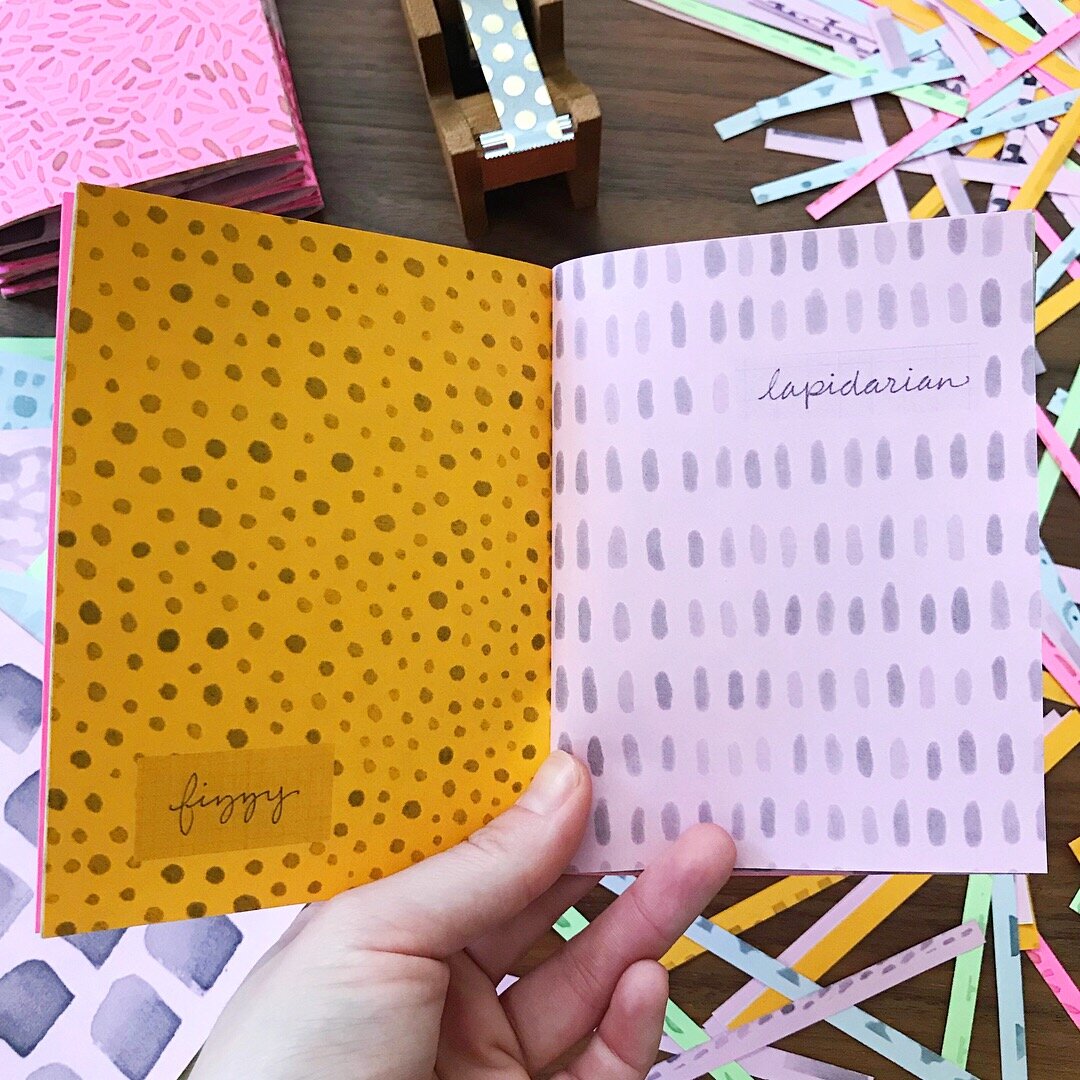 fizzy
lapidarian